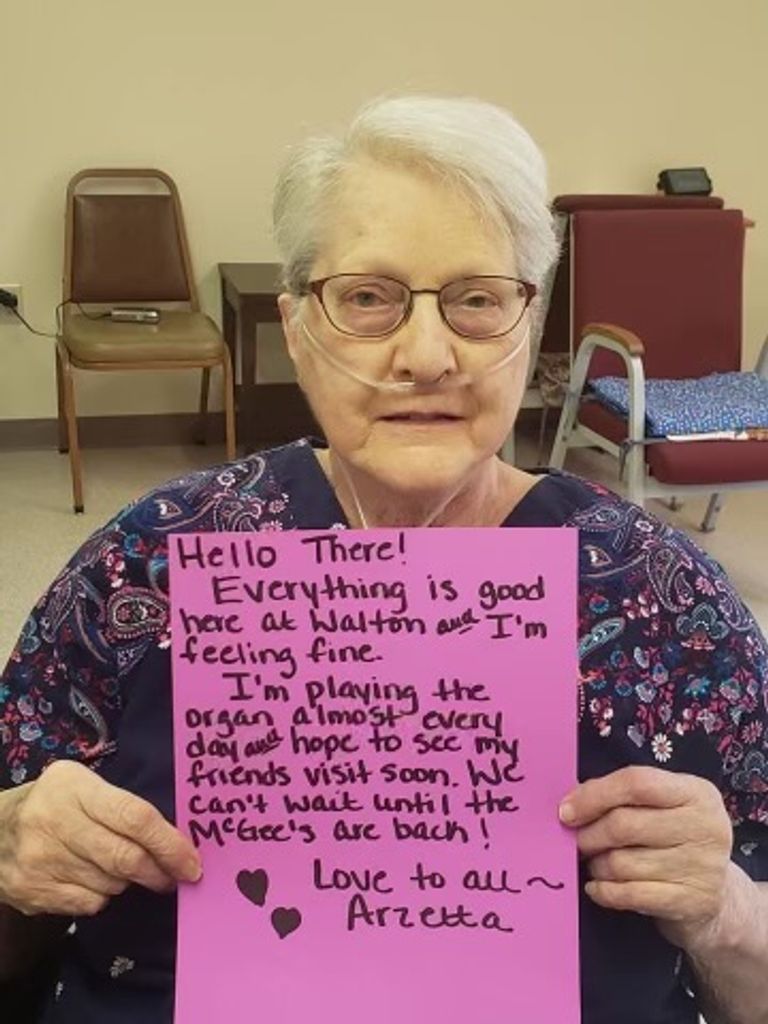 Hello There!
Everything is good
here at Walton and I'm
feeling fine.
I'm playing the
organ almost every
day and hope to see my
friends visit soon. We
can't wait until the
McGee's are back!
Love to all ~
Arzetta